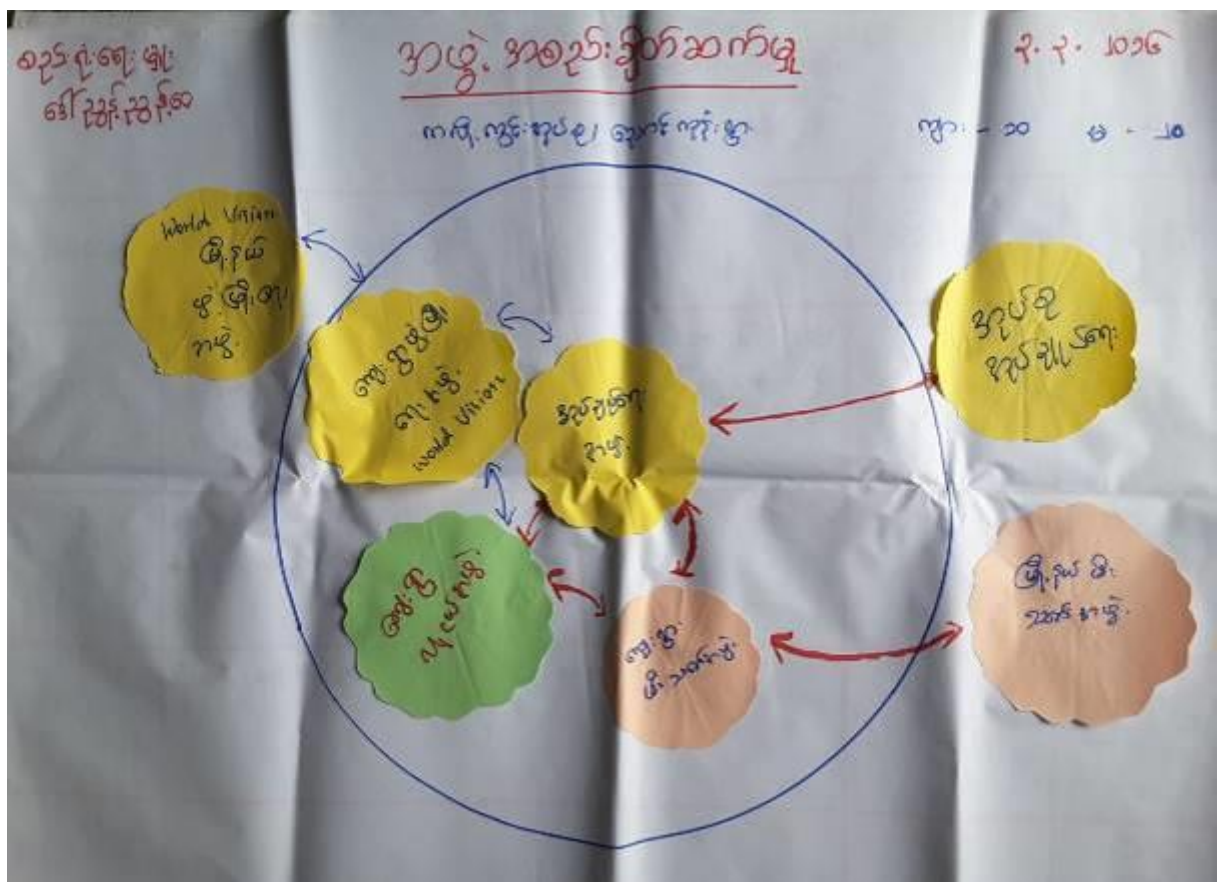 စည်းရုံးရေးမှူး
ဒေါ်ညွန့်ညွန့်ဝေ
အဖွဲ့အစည်းချိတ်ဆက်မှု
၃.၃.၂၀၁၆
ကျွင်းအုပ်စု၊ ညောင်ကုန်းရွာ
ကျား - ၁၀ မ - ၂၀
World Vision
မြို့နယ်
ဖွံ့ဖြိုးရေး
အဖွဲ့
ကျေးရွာဖွံ့ဖြိုး
ရေးအဖွဲ့
World Vision
အုပ်ချုပ်ရေး
ရာမှူး
အုပ်စု
အုပ်ချုပ်ရေး
ကျေးရွာ
လူငယ်အဖွဲ့
ကျေးရွာ
မီးသတ်အဖွဲ့
မြို့နယ် မီး
သတ်အဖွဲ့